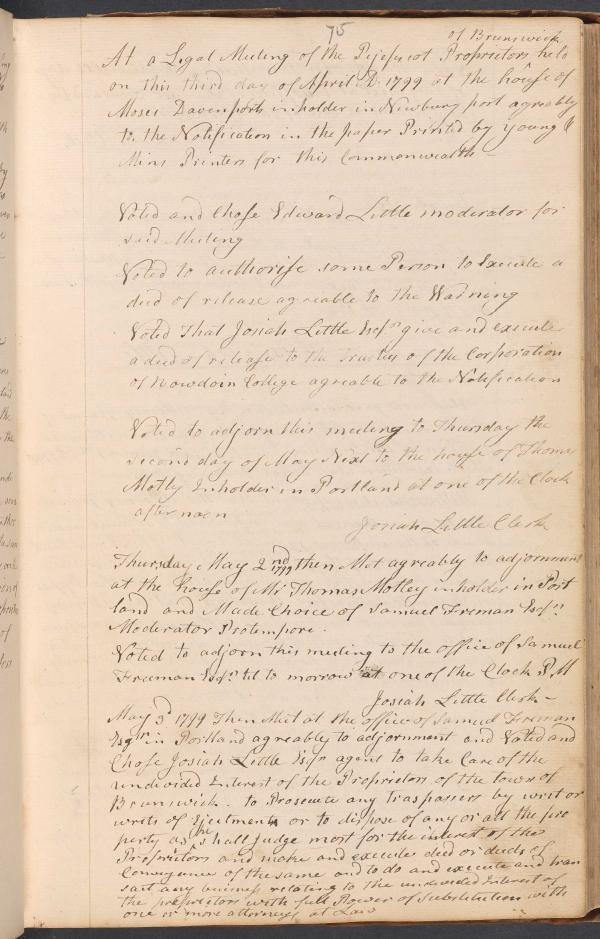 75
of Brunswick
At a Legal Meeting of the Pejepscot Proprietors held
on this third day of April AD. 1799 at the house of
Moses Davenports inholder in Newbury port agreably
to the Notification in the paper Printed by young &
Mins Printers for this Commonwealth –
Voted and Chose Edward Little moderator for
said Meeting
Voted to authorise some Person to Execute a
deed of release agreable to the Warning
Voted That Josiah Little Esqr give and execute
a deed of release to the Trustees of the Corporation
of Bowdoin College agreable to the Notification
Voted to adjorn this meeting to Thursday the
second day of May Next to the house of Thomas
Motly Inholder in Portland at one of the Clock
afternoon
Josiah Little Clerk
Thursday May 2nd 1799 then Met agreably to adjornment
at the house of Mr Thomas Motley inholder in Port
land and Made Choice of Samuel Freman Esqr
Moderator Protempore.
Voted to adjorn this meeting to the office of Samuel
Freeman Esqr til to morrow at one of the Clock P M
Josiah Little Clerk –
May 3d 1799 Then Met at the office of Samuel Freman
Esqr in Portland agreably to adjornment and Voted and
Chose Josiah Little Esqr agent to take Care of the
undivided Interest of the Proprietors of the town of
Brunswick. to Prosecute any traspassers by writ or
writs of Ejectment or to dispose of any or all the pro
perty as he shall Judge most for the interest of the
Proprietors and make and execute deed or deeds of
Conveyence of the same and to do and execute and tran
sact any business relating to the undivided Interest of
the proprietors with full Power of Substitution with
one or more attorneys at Law